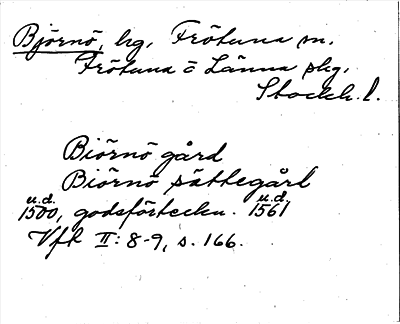 Björnö, hg, Frötuna sn.
Frötuna o Länna skg.
Stockh. l.
Biörnö gård
Biörnö sättegård
u.d. u.d.
1500, godsförteckn. 1561
Vfh II: 8-9, s. 166.